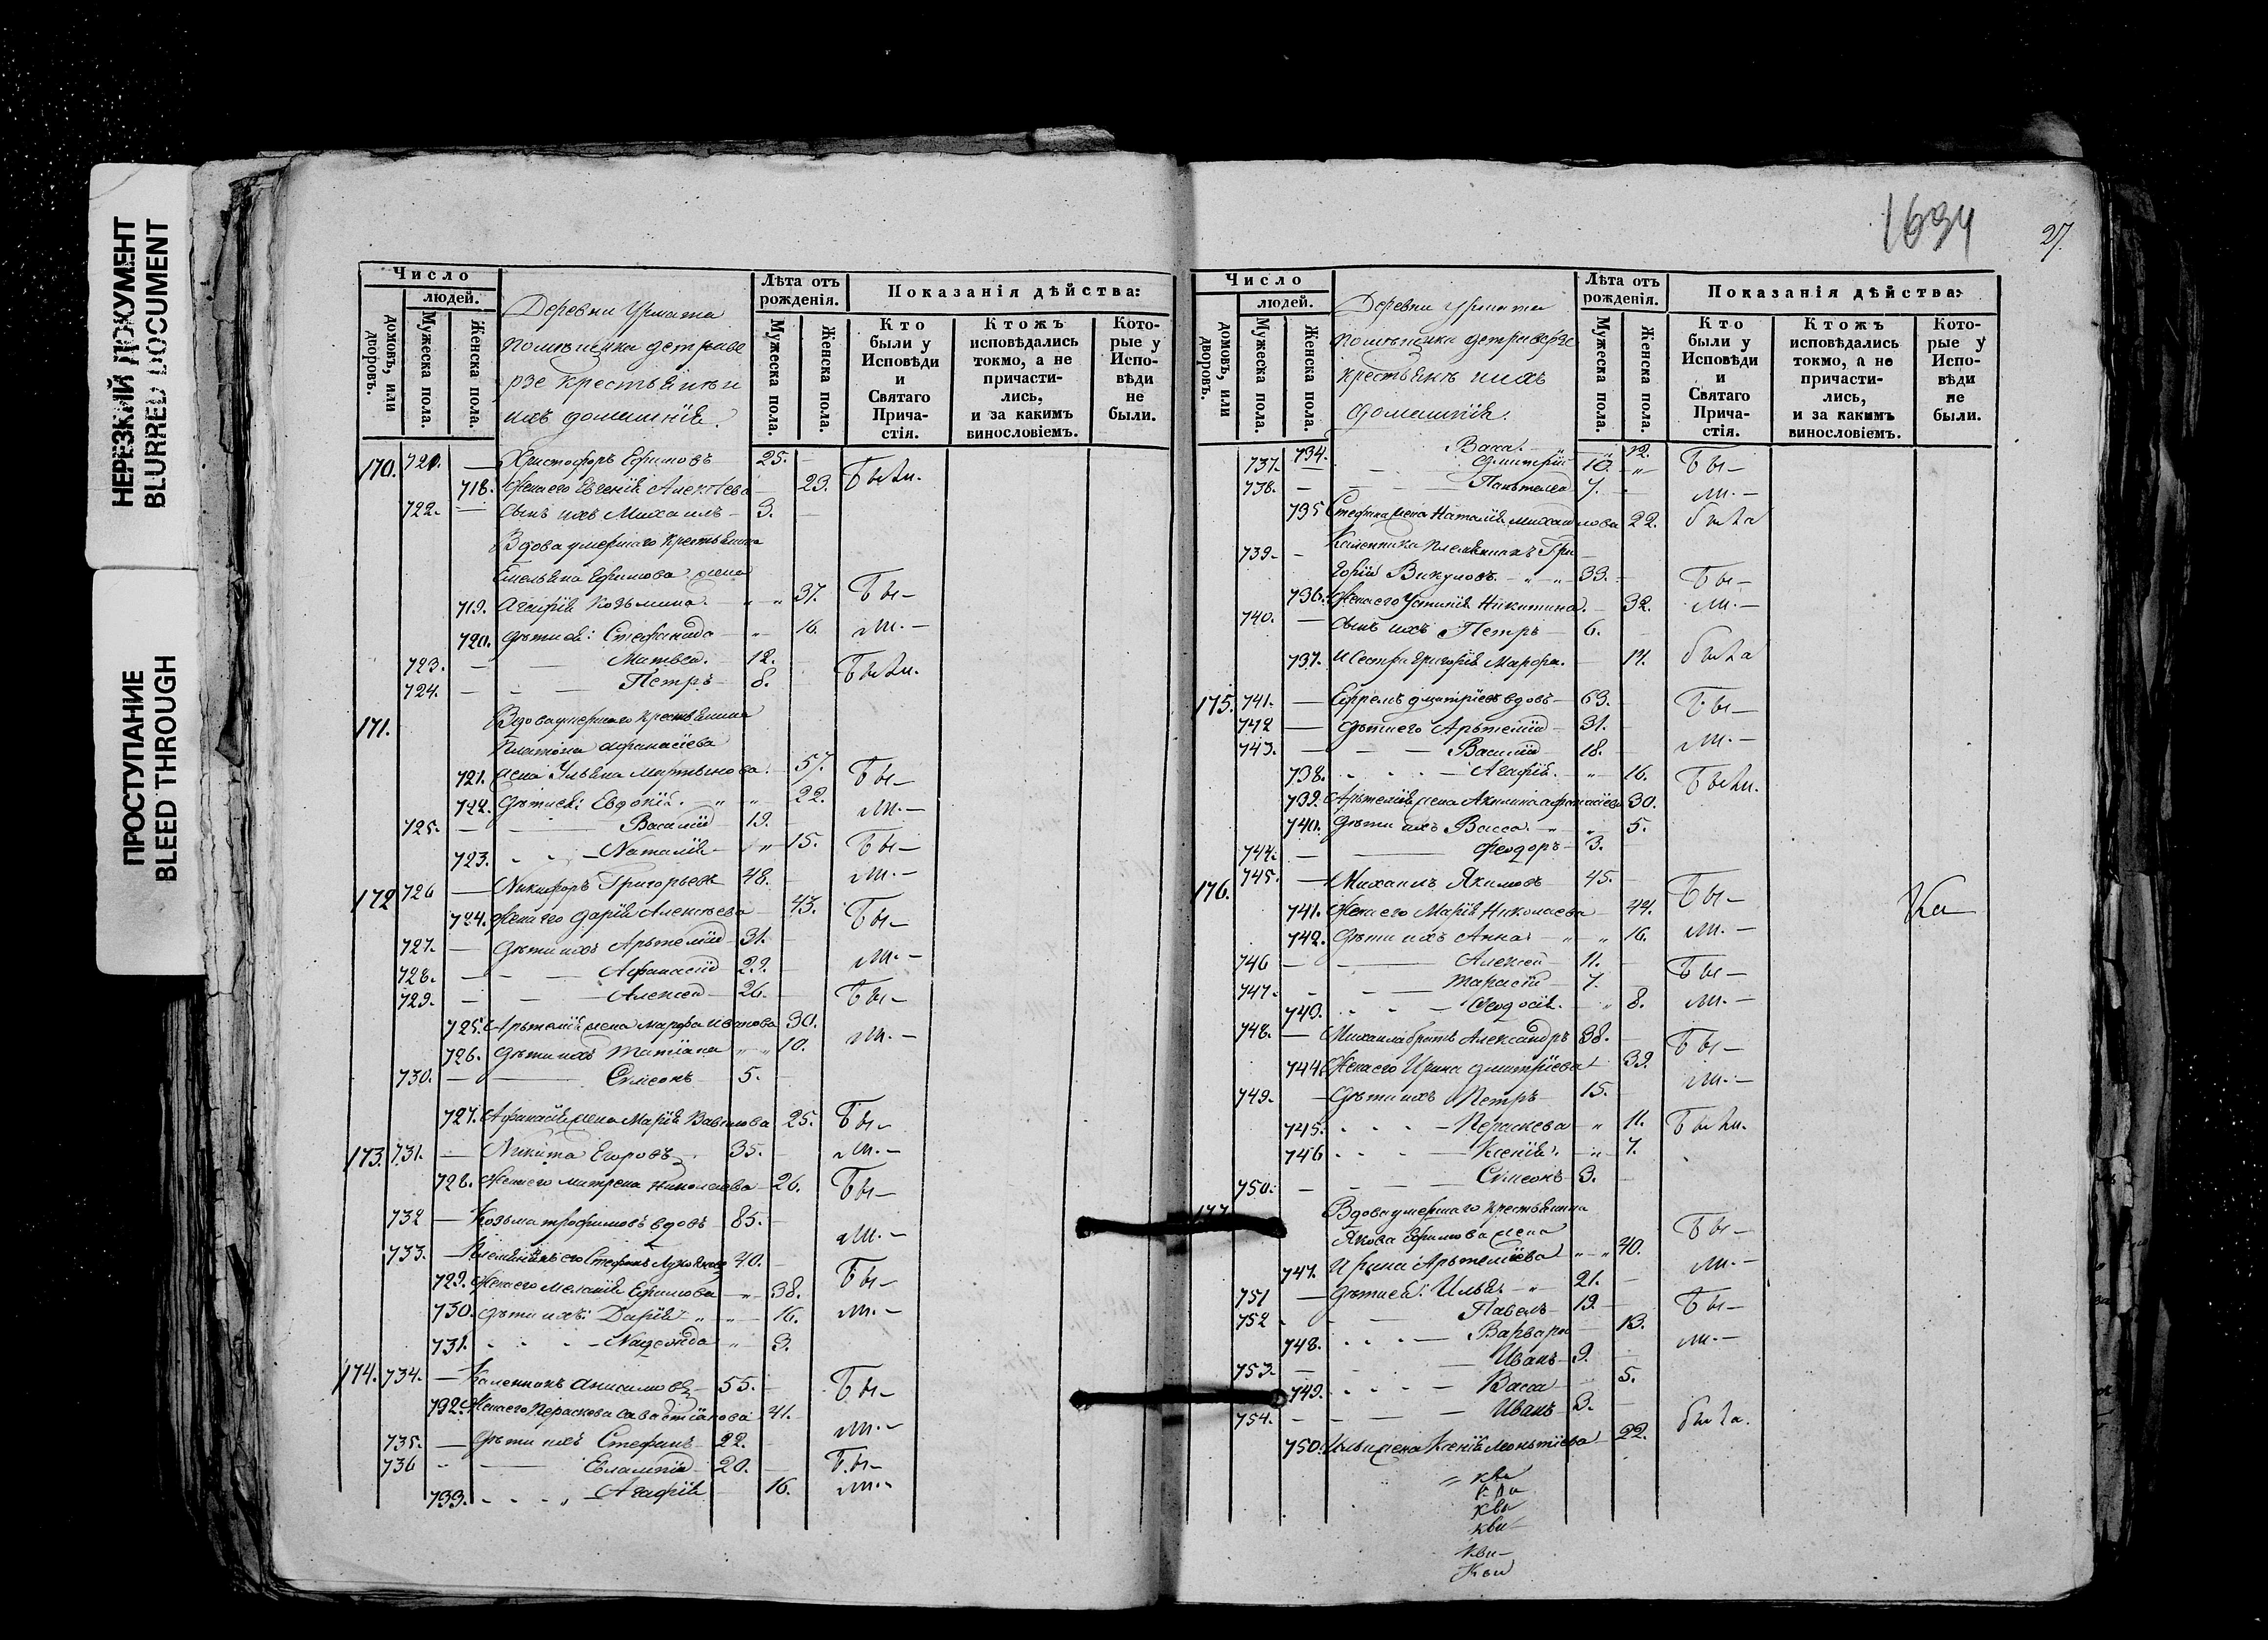 НЕРЕЗКИЙ ДОКУМЕНТ
BLURRED DOCUMENT
ПРОСТУПАНИЕ
BLEED THROUGH
Число
людей.
домовъ, или дворовъ.
Мужеска пола.
Женска пола.
Деревни Урмата
помѣщика
крестьянѣ и
ихъ домашнія.
Лѣта отъ рожденія.
Мужеска пола.
Женска пола.
Показанія дѣйства:
Кто были у Исповѣди и Святаго Причастія.
Ктожъ исповѣдались токмо, а не причастились, и за какимъ винословіемъ.
Которые у Исповѣди не были.
170. 721. — Христофоръ Ефимовъ 25. Были.
718. Жена его Евгенія Алексѣева 23.
722. — Сынъ ихъ Михаилъ — 3.
Вдова умершаго крестьянина
Емельяна Ефимова жена
719. Агафія Козьмина. 37. Бы—
720. Дѣти ея: Стефанида 16. ли. —
723. — Матвей. — 12. Были.
724. — Петръ — 8.
171. Вдова умершаго крестьянина
Платона Афанасіева
721. жена Ульяна Мартынова. 57. Бы—
722. Дѣти ея: Евдокія. 22. ли. —
725. — Василій 19. Бы—
723. — Наталія — 15. ли. —
172 726 — Никифоръ Григорьевъ 48.
724. Жена его Дарія Алексѣева 43. Бы—
727. — Дѣти ихъ Артемій 31.
728. — Афанасій 29. ли. —
729. — Алексей 26. Бы—
725. Артемія жена Марфа Иванова 30. ли. —
726. Дѣти ихъ Татіана 10.
730. — Симеонъ 5.
727. Афанасія жена Марія Вавилова 25. Бы—
173. 731. — Никита Егоровъ 35. ли. —
728. Жена его Матрена Николаева 26. Бы—
732 — Козьма Трофимовъ вдовъ 85. ли. —
733. — Племянникъ его Стефанъ 40.
729. Жена его Меланія Ефимова 38. Бы—
730. Дѣти ихъ: Дарія 16. ли. —
731. — Надежда 3.
174. 734. — Каленникъ Анисимовъ — 55. Бы—
732. Жена его Параскева Савастіанова 41. ли. —
735. — Дѣти ихъ Стефанъ 22.
736 — Евлампій — 20. Бы—
733. — Агафія 16. ли. —
1634
27
Число
людей.
домовъ, или дворовъ.
Мужеска пола.
Женска пола.
Деревни Урмата
помѣщика
крестьянѣ ихъ
домашнія.
Лѣта отъ рожденія.
Мужеска пола.
Женска пола.
Показанія дѣйства:
Кто были у Исповѣди и Святаго Причастія.
Ктожъ исповѣдались токмо, а не причастились, и за какимъ винословіемъ.
Которые у Исповѣди не были.
734. Васса. 12.
737. — Дмитрій 10. Бы—
738. — Пантелей 7. ли. —
735 Стефана жена Наталія Михайлова 22. была
739. — Каленника племянникъ Гри
горій Викуловъ. 33. Бы—
736. Жена его Устинія Никитина. 32. ли. —
740. — Сынъ ихъ Петръ 6.
737. И сестра Григорія Марфа. 17. была
175. 741. — Ефремъ Дмитріевъ вдовъ — 63. Бы—
742 — Дѣти его Артемій 31.
743. — Василій 18. ли. —
738. — Агафія. 16. Были.
739. Артемія жена Акилина Афанасіева 30.
740. Дѣти ихъ Васса. 5.
744. — Феодоръ 3.
176. 745. — Михаилъ Якимовъ 45. Бы—
741. Жена его Марія Николаева 44.
742. Дѣти ихъ Анна 16. ли. —
746 — Алексей 11. Бы—
747. — Тарасій 7.
740. — Феодосія. 8. ли. —
748. — Михаила братъ Александръ 38. Бы—
744. Жена его Ирина Дмитріева 39. ли. —
749. — Дѣти ихъ Петръ 15.
745. — Пераскева 11. Были.
746 — Ксенія. 7.
750. — Симеонъ 3.
177. Вдова умершаго крестьянина
Якова Ефимова жена Бы—
747. Ирина Артеміева 40. ли. —
751 — Дѣти ея: Илья 21.
752 — Павелъ 19. Бы—
748. — Варвара 13. ли. —
753. — Иванъ 9.
749. — Васса 5.
754. — Иванъ 3.
750. Ильи жена Ксенія Леонтіева 22. была.